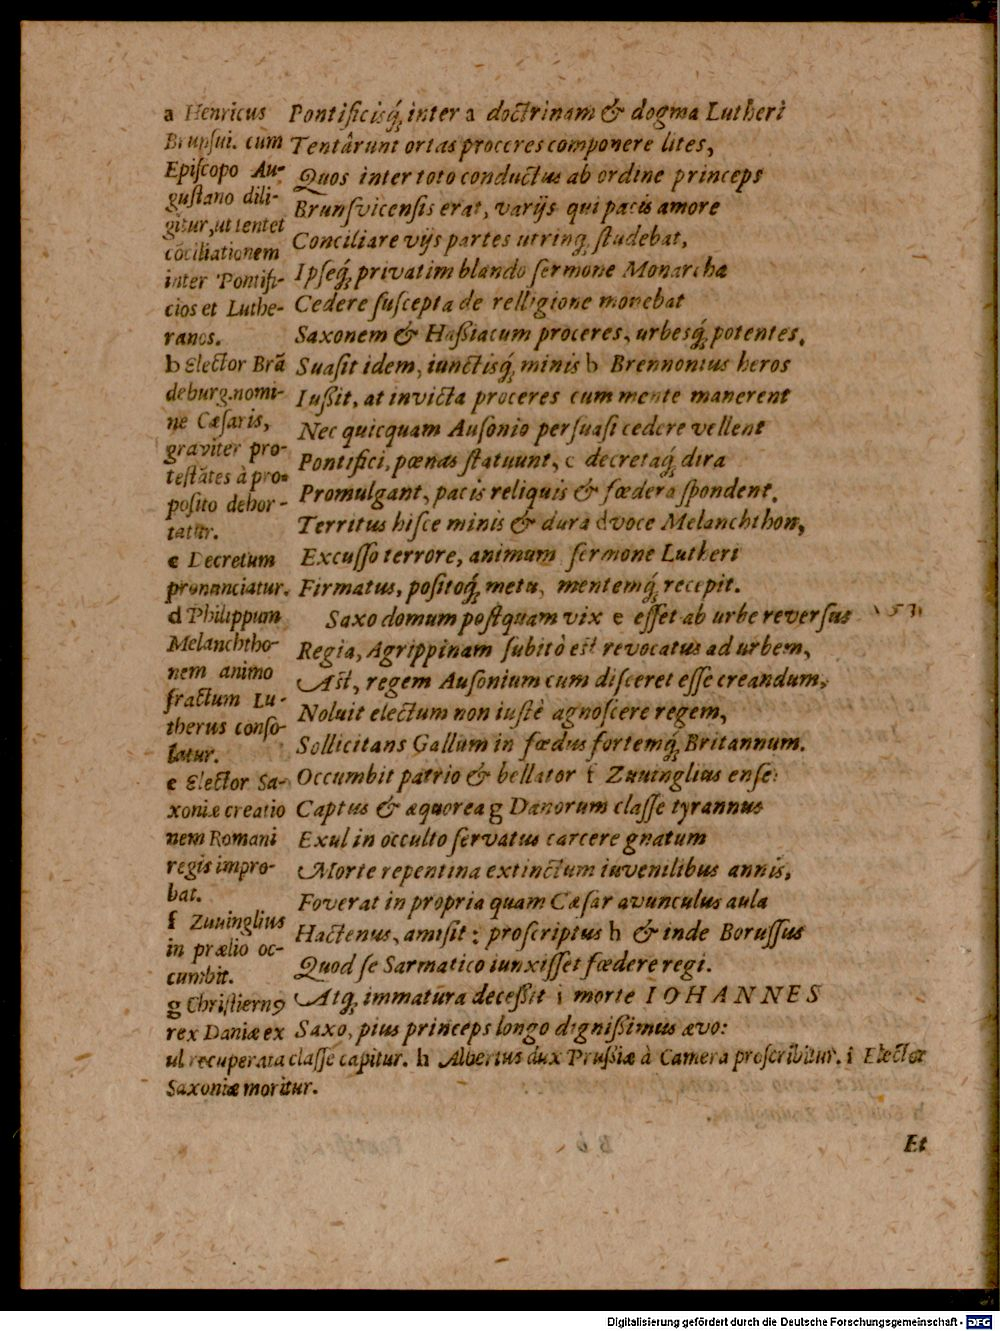 Pontificisq́; inter a doctrinam & dogma Lutheri
Tentârunt ortas proceres componere lites,
Quos inter toto conductus ab ordine princeps
Brunſvicenſis erat, varijs qui pacis amore
Conciliare vijs partes utrinq; ſtudebat,
Ipſeq́; privatim blando ſermone Monarcha
Cedere ſuſcepta de relligione monebat
Saxonem & Haßiacum proceres, urbesq́; potentes.
Suaſit idem, iunctisq́; minis b Brennonius heros
Iußit, at invicta proceres cum mente manerent
Nec quicquam Auſonio perſuaſi cedere vellent
Pontifici, pœnas ſtatuunt, c decretaq́; dira
Promulgant, pacis reliquis & fœdera ſpondent.
Territus hiſce minis & dura d voce Melanchthon,
Excuſſo terrore, animum ſermone Lutheri
Firmatus, poſitoq́; metu, mentemq́; recepit.
Saxo domum poſtquam vix e eſſet ab urbe reverſus 1531
Regia, Agrippinam ſubitò est revocatus ad urbem,
Ast, regem Auſonium cum diſceret eſſe creandum,
Noluit electum non iuſtè agnoſcere regem,
Sollicitans Gallum in fœdus fortemq́; Britannum.
Occumbit patrio & bellator f Zuuinglius enſe:
Captus & æquorea g Danorum claſſe tyrannus
Exul in occulto ſervatus carcere gnatum
Morte repentina extinctum iuvenilibus annis,
Foverat in propria quam Cæſar avunculus aula
Hactenus, amiſit: proſcriptus h & inde Boruſſus
Quod ſe Sarmatico iunxiſſet fœdere regi.
Atq; immatura deceßit i morte IOHANNES
Saxo, pius princeps longo digniſſimus ævo:
a Henricus
Brunſui. cum
Epiſcopo Au-
guſtano dili-
gitur, ut tentet
cōciliationem
inter Pontifi-
cios et Luthe-
ranos.
b Elector Brā
deburg. nomi-
ne Cæſaris,
graviter pro-
teſtātes à pro-
poſito dehor-
tatur.
c Decretum
pronunciatur.
d Philippum
Melanchtho-
nem animo
fractum Lu-
therus conſo-
latur.
e Elector Sa-
xoniæ creatio
nem Romani
regis impro-
bat.
f Zuuinglius
in prælio oc-
cumbit.
g Chriſtiernꝰ
rex Daniæ ex
ul recuperata claſſe capitur. h Albertus dux Prußiæ à Camera proſcribitur. i Elector
Saxoniæ moritur.
Et
Digitalisierung gefördert durch die Deutsche Forschungsgemeinschaft - DFG